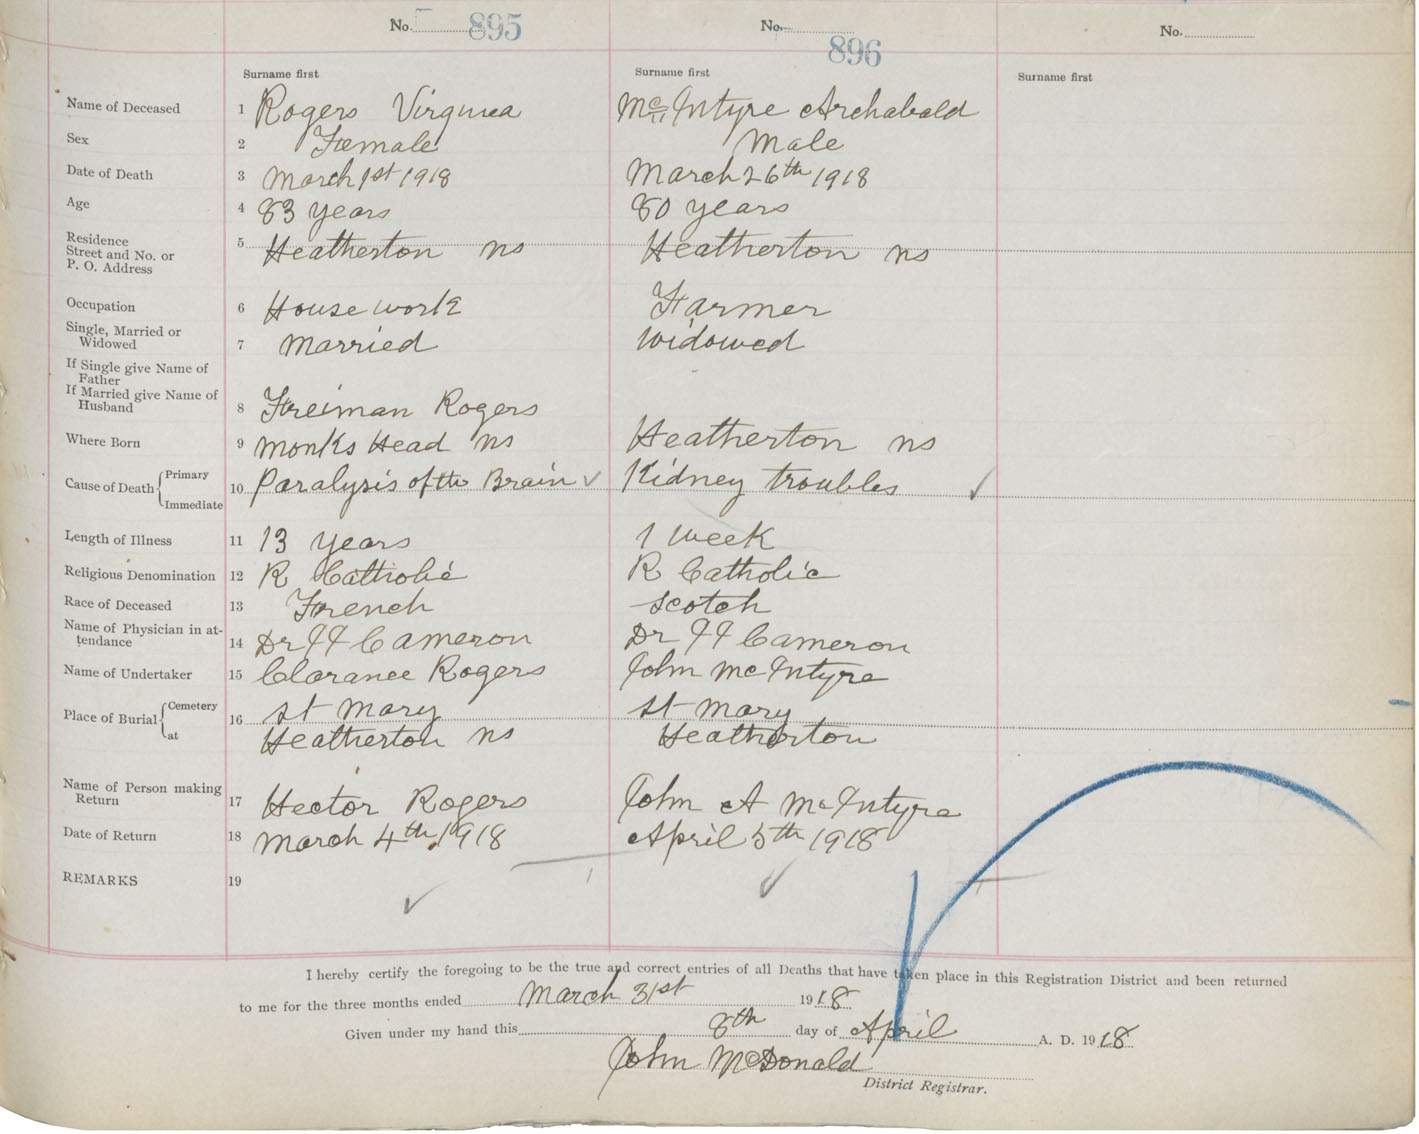 No. 895 No. 896 No.
Surname first Surname first Surname first
Name of Deceased 1 Rogers Virginea McIntyre Archabald
Sex 2 Female Male
Date of Death 3 March 1st 1918 March 26th 1918
Age 4 83 years 80 years
Residence
Street and No. or
P. O. Address 5 Heatherton ns Heatherton ns
Occupation 6 House work Farmer
Single, Married or
Widowed 7 Married Widowed
If Single give Name of
Father
If Married give Name of
Husband 8 Freiman Rogers
Where Born 9 Monks Head ns Heatherton ns
Cause of Death { Primary
Immediate 10 Paralysis of the Brain ✓ Kidney troubles ✓
Length of Illness 11 13 years 1 week
Religious Denomination 12 R Catholic R Catholic
Race of Deceased 13 French Scotch
Name of Physician in at-
tendance 14 Dr JJ Cameron Dr JJ Cameron
Name of Undertaker 15 Clarance Rogers John McIntyre
Place of Burial { Cemetery 16 St Mary St Mary
at Heatherton ns Heatherton
Name of Person making
Return 17 Hector Rogers John A McIntyre
Date of Return 18 March 4th 1918 April 5th 1918
REMARKS 19
✓ ✓
I hereby certify the foregoing to be the true and correct entries of all Deaths that have taken place in this Registration District and been returned
to me for the three months ended March 31st 1918
Given under my hand this 8th day of April A. D. 1918
John McDonald
District Registrar.